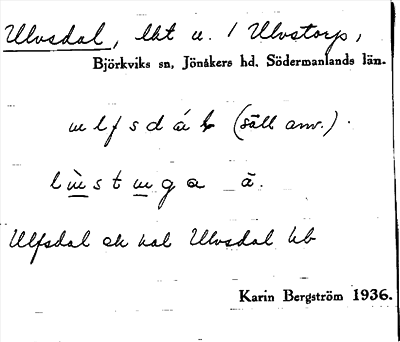 Ulvsdal, lht u. / Ulvstorp,
Björkviks sn, Jönåkers hd, Södermanlands län.
ulfsdál (säll anv.).
lùstuga ā.
Ulfsdal ek kal Ulvsdal hb
Karin Bergström 1936.